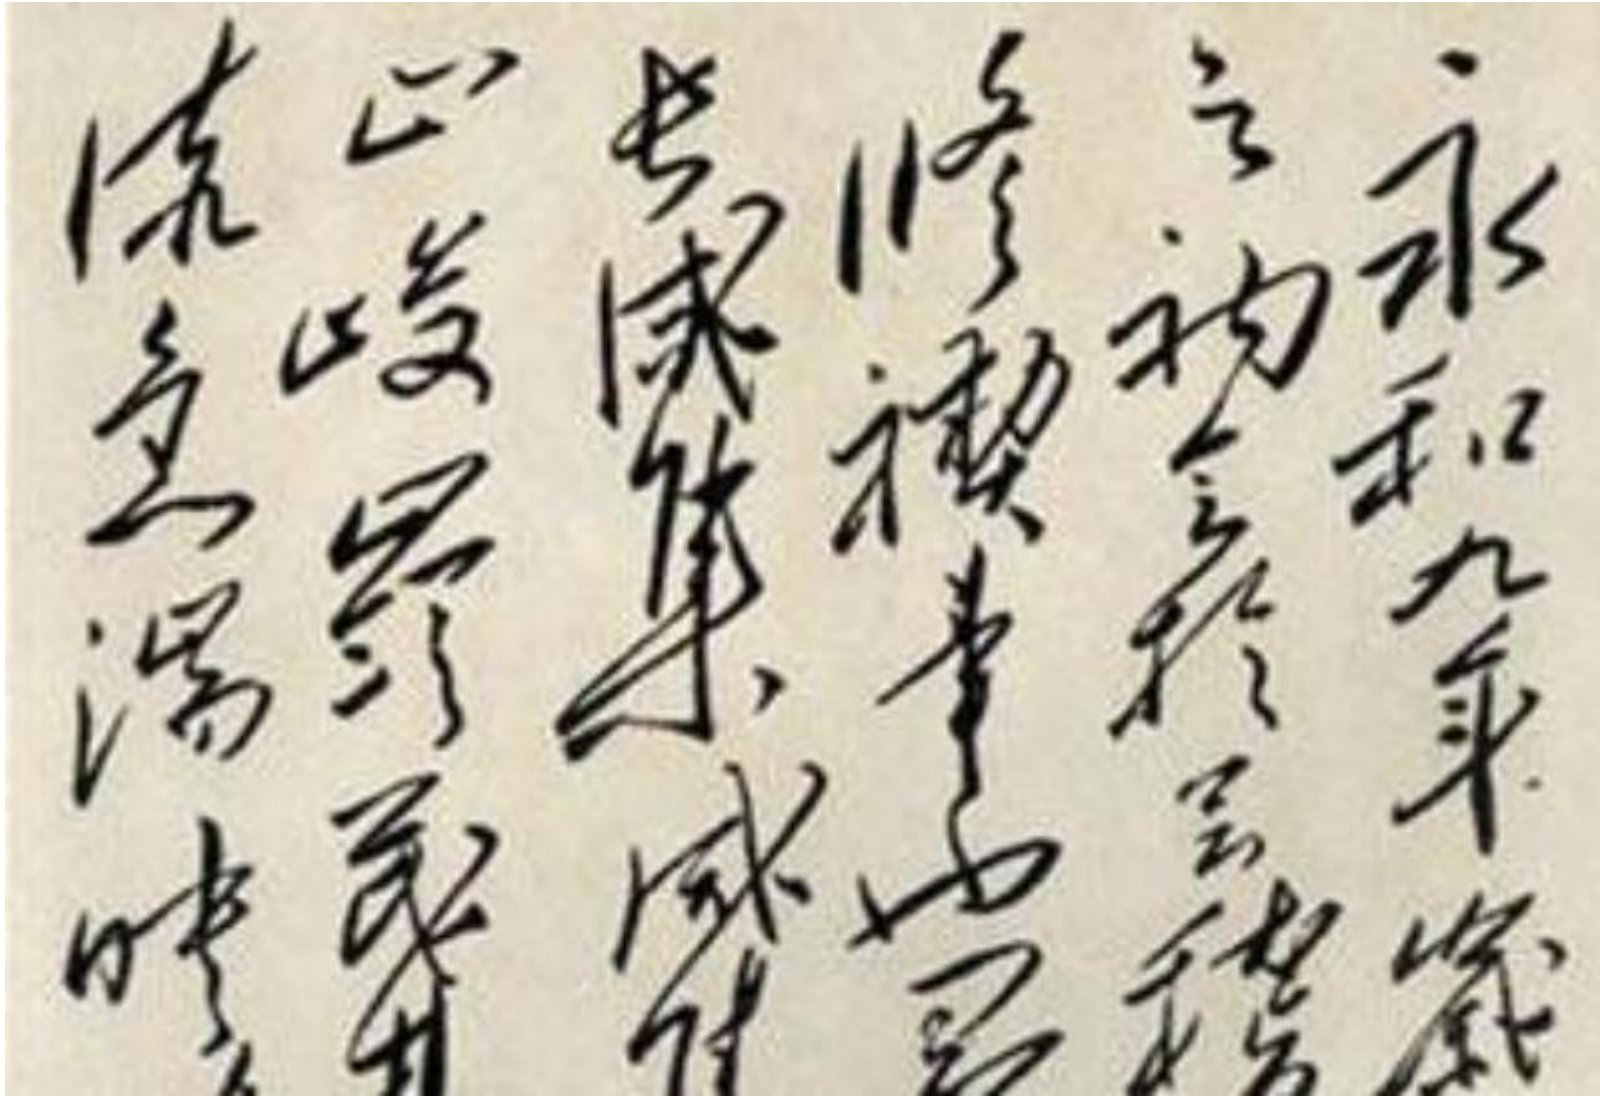 永和九年歲
之初会於会稽
修禊事也
長咸集咸
山峻嶺茂
流急湍映